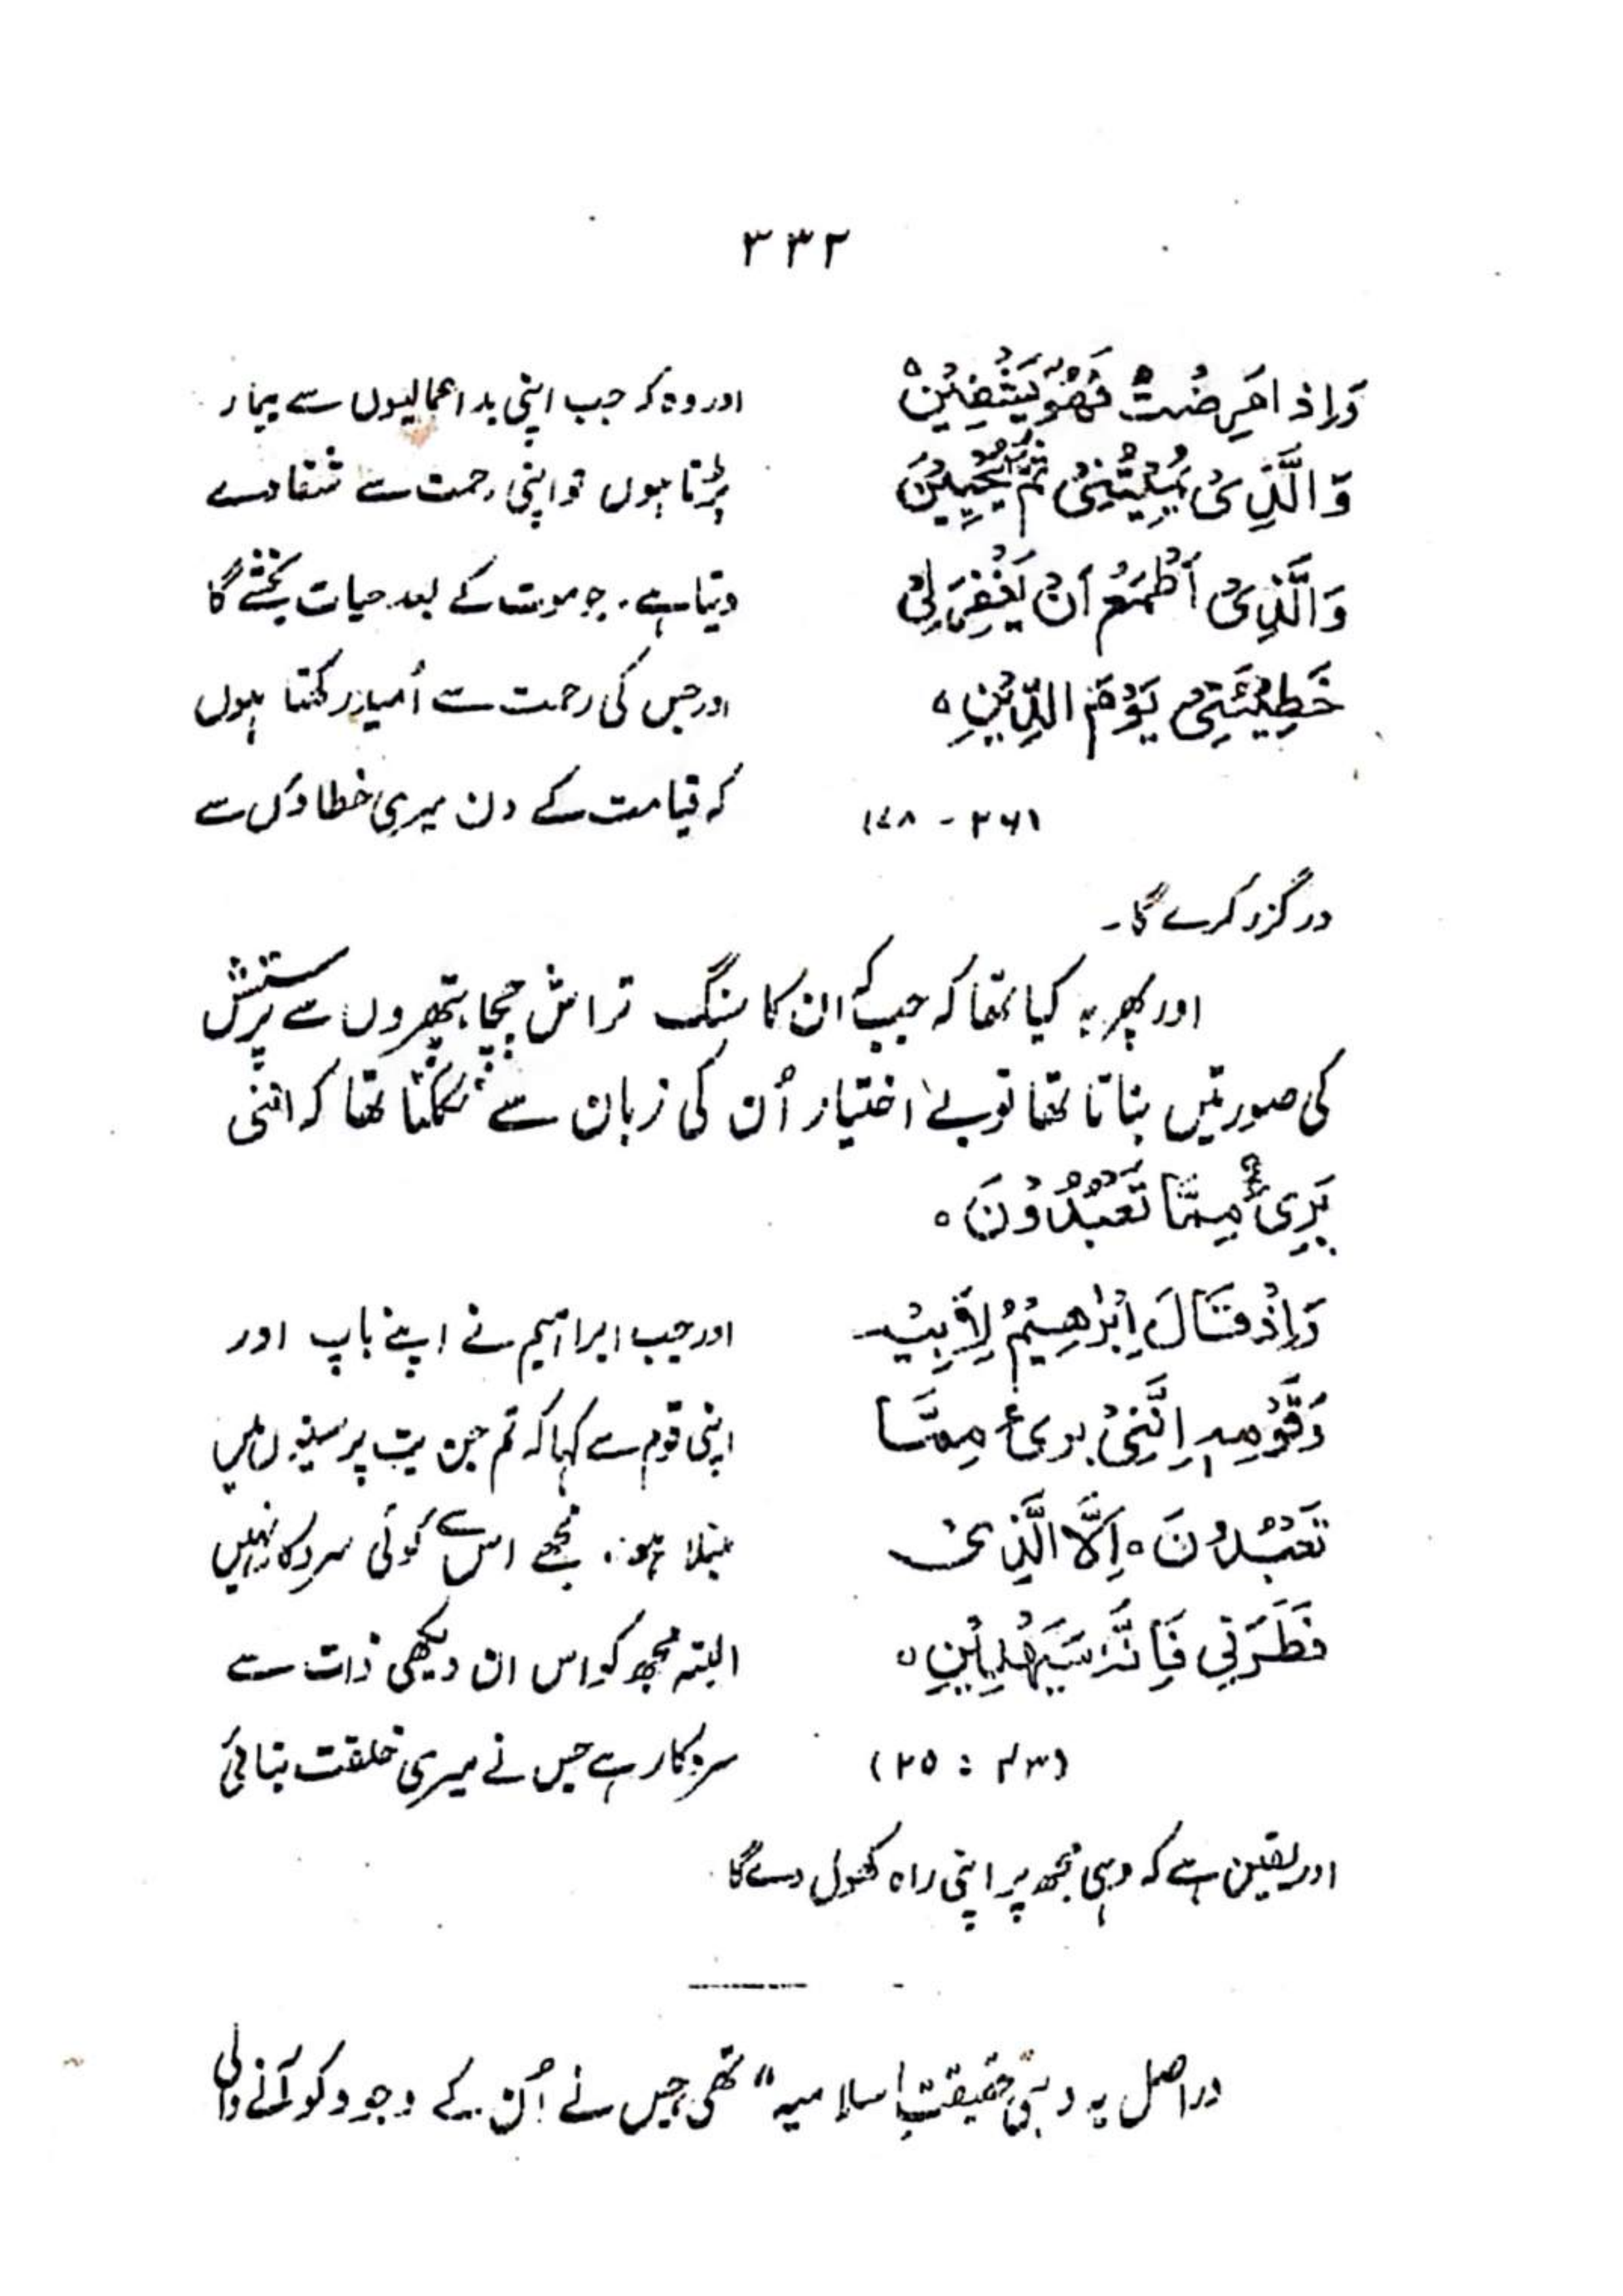 ۳۳۲
وَاِذا مَرِضْتُ فَهُوَ يَشْفِيْنِ ه
وَالَّذِیْ يُمِيْتُنِیْ ثُمَّ يُحْيِيْنَ
وَالَّذِیْ أَطْمَعُ أَنْ يَغْفِرَ لِیْ
خَطِيْئَتِیْ يَوْمَ الدِّيْنِ ه
اور وہ کہ جب اپنی بد اعمالیوں سے بیمار
پڑتا ہوں تو اپنی رحمت سے شفا دے
دیتا ہے۔ جو موت کے بعد حیات بخشے گا
اور جس کی رحمت سے اُمید رکھتا ہوں
کہ قیامت کے دن میری خطاؤں سے
درگزر کرے گا۔
اور پھر یہ کیا تھا کہ جب کہ ان کا سنگ تراش چچا پتھروں سے پرستش
کی صورتیں بناتا تھا تو بے اختیار اُن کی زبان سے نکلتا تھا کہ اننی
بَرِیءٌ مِمَّا تَعْبُدُوْنَ ہ
وَاِذْ قَالَ اِبْرٰهِيْمُ لِاَبِيْهِ
وَقَوْمِهٖ اِنَّنِیْ بریء مِمَّا
تَعْبُدُونَ ہ اِلَّا الَّذِیْ
فَطَرَنِي فَاِنَّهٗ سَيَهْدِيْنِ ہ
(۲۵ : ۴۳)
اور جب ابراہیم نے اپنے باپ اور
اپنی قوم سے کہا کہ تم جن بت پرستیوں میں
مبتلا ہو، مجھے اس سے کوئی سروکار نہیں
البتہ مجھ کو اس ان دیکھی ذات سے
سروکار ہے جس نے میری خلقت بنائی
اور یقین ہے کہ وہی مجھ پر اپنی راہ کھول دے گا
دراصل یہ وہی "حقیقتِ اسلامیہ" تھی جس نے اُن کے وجود کو آنے والی